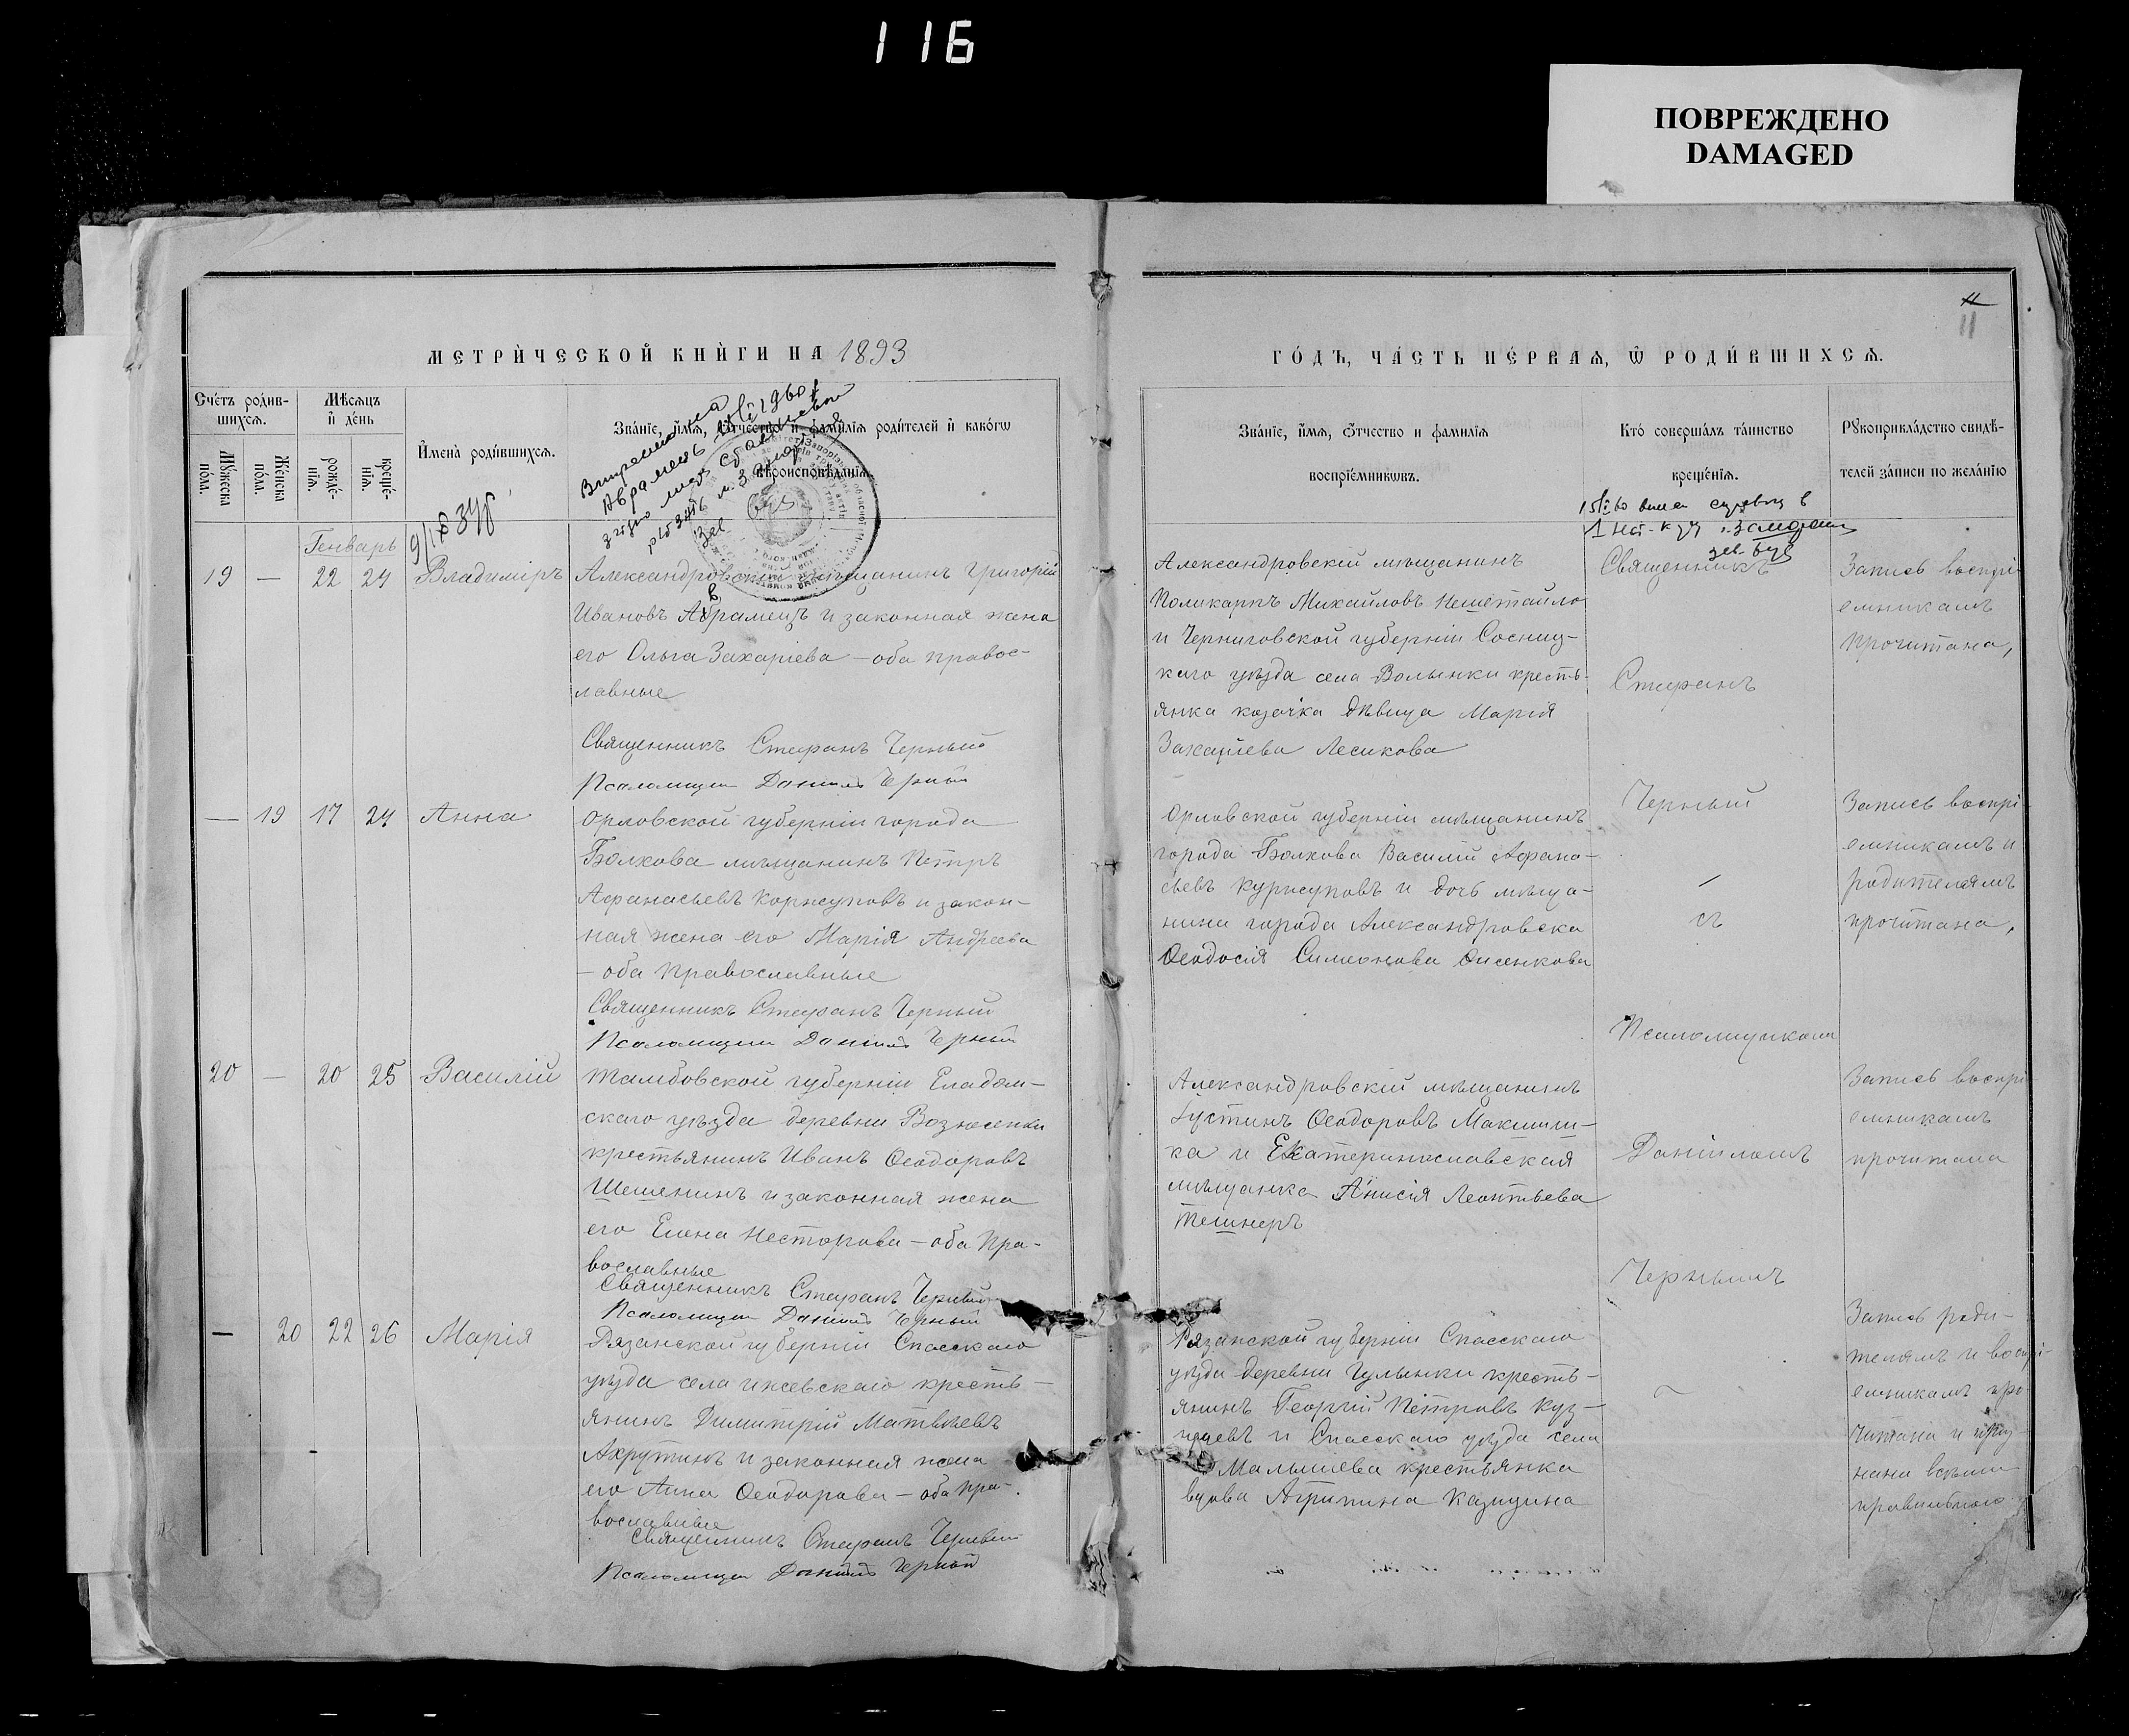 116
ПОВРЕЖДЕНО
DAMAGED
11
11
МЕТРИ́ЧЕСКОЙ КНИ́ГИ НА 1893
ГО́ДЪ, ЧА́СТЬ ПЕ́РВАЯ, Ѿ РОДИ́ВШИХСЯ.
Сче́тъ роди́в-
шихся.
Мѣ́сяцъ
и҆ де́нь
Мꙋ́жеска
по́ла.
Же́нска
по́ла.
рожде́-
нїя.
креще́-
нїя.
И҆мена̀ роди́вшихся.
Зва́нїе, и҆́мя, ѻ҆́тчество и҆ фами́лїя роди́телей и҆ како́гѡ
вѣроисповѣ́данїя.
Зва́нїе, и҆́мя, ѻ҆́тчество и фами́лїя
воспрїе́мникѡвъ.
Кто̀ соверша́лъ та́инство
креще́нїя.
Рꙋкоприкла́дство свидѣ́-
телей за́писи по жела́нїю
Генварь
19 — 22 24 Владиміръ
Александровскій мѣщанинъ Григорій
Ивановъ Абрамецъ и законная жена
его Ольга Захаріева — оба правос-
лавные
Священникъ Стефанъ Черный
Псаломщик Даніилъ Черный
Александровскій мѣщанинъ
Поликарпъ Михайловъ Нешетайло
и Черниговской губерніи Сосниц-
каго уѣзда села Волынки кресть-
янка козачка дѣвица Марія
Захаріева Лесикова
Священникъ
Стефанъ
Черный
Запись воспрі-
емникамъ
прочитана,
— 19 17 24 Анна
Орловской губерніи города
Болхова мѣщанинъ Петръ
Афанасьевъ Корнсуповъ и закон-
ная жена его Марія Андреева
— оба православные
Священникъ Стефанъ Черный
Псаломщик Даніилъ Черный
Орловской губерніи мѣщанинъ
города Болхова Василій Афана-
сьевъ и дочь мѣща-
нина города Александровска
Ѳеодосія Симеонова
съ
Псаломщикомъ
Запись воспрі-
емникамъ и
родителямъ
прочитана,
20 — 20 25 Василій
Тамбовской губерніи Елатом-
скаго уѣзда деревни Вознесенки
крестьянинъ Иванъ Ѳеодоровъ
Шешенинъ и законная жена
его Елена Несторова — оба пра-
вославные
Священникъ Стефанъ Черный
Псаломщик Даніилъ Черный
Александровскій мѣщанинъ
Іустинъ Ѳеодоровъ Макшили-
ка и Екатеринославская
мѣщанка Анисія Леонтьева
Тешнеръ
Даніиломъ
Чернымъ
Запись воспрі
емникамъ
прочитана
— 20 22 26 Марія
Рязанской губерніи Спасскаго
уѣзда села Ижевскаго кресть-
янинъ Димитрій Матвѣевъ
Ахрутинъ и законная жена
его Анна Ѳеодорова — оба пра-
вославные
Священникъ Стефанъ Черный
Псаломщик Даніилъ Черный
Рязанской губерніи Спасскаго
уѣзда деревни Гулынки кресть-
янинъ Георгій Петровъ Куз-
и Спасскаго уѣзда села
Малышева крестьянка
вдова Агрипина Казицина
Запись роди-
телямъ и воспрі-
емникамъ про-
читана и приз-
нана всѣми
правильною